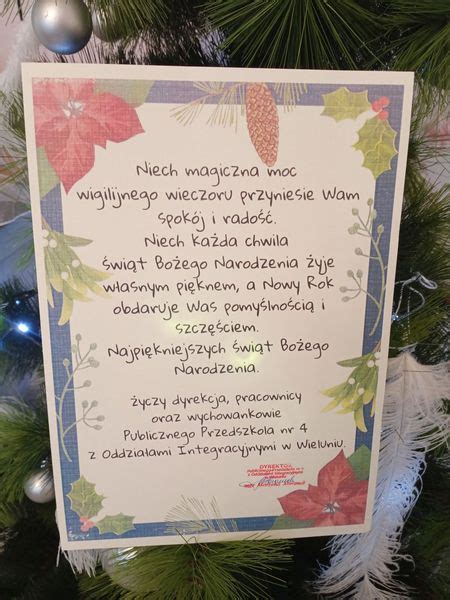 Niech magiczna moc
wigilijnego wieczoru przyniesie Wam
spokój i radość.
Niech każda chwila
świąt Bożego Narodzenia żyje
własnym pięknem, a Nowy Rok
obdaruje Was pomyślnością i
szczęściem.
Najpiękniejszych świąt Bożego
Narodzenia.
życzy dyrekcja, pracownicy
oraz wychowankowie
Publicznego Przedszkola nr 4
z Oddziałami Integracyjnymi w Wieluniu.
DYREKTOR